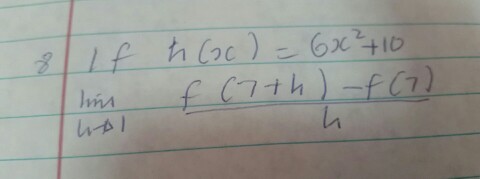 8 If h(x) = 6x²+10
lim f(7+h) - f(7)
h→1 h